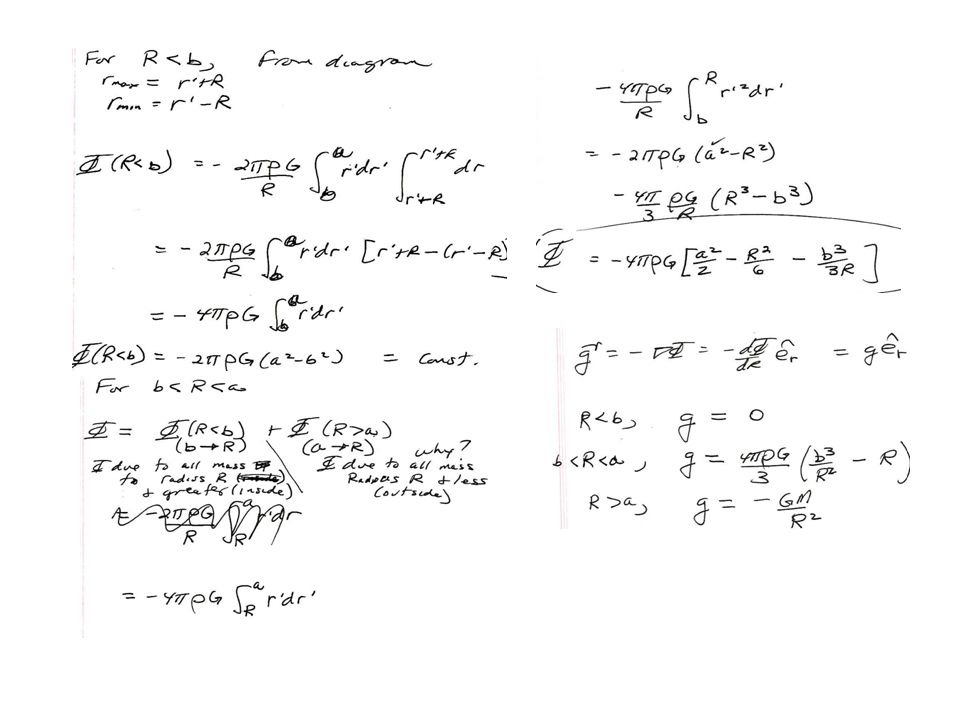 For R < b, from diagram
r_max = r'+R
r_min = r'-R
Φ(R<b) = - 2πρG/R ∫_b^a r'dr' ∫_{r'+R}^{r'+R} dr
= - 2πρG/R ∫_b^a r'dr' [r'+R-(r'-R)
= - 4πρG ∫_b^a r'dr'
Φ(R<b) = - 2πρG(a²-b²) = const.
For b < R < a
Φ = Φ(R<b) + Φ(R>a)
(b→R) (a→R) why?
Φ due to all mass
to radius R
& greater (inside)
Φ due to all mass
Radius R & less
(outside)
- 2πρG/R ∫_R^a r'dr
= - 4πρG ∫_R^a r'dr'
- 4πρG/R ∫_b^R r'²dr'
= - 2πρG (a²-R²)
- 4π/3 ρG/R (R³-b³)
Φ = -4πρG[a²/2 - R²/6 - b³/3R]
g⃗ = - ∇Φ = - dΦ/dR ê_r = g ê_r
R<b, g = 0
b<R<a, g = 4πρG/3 (b³/R² - R)
R>a, g = - GM/R²